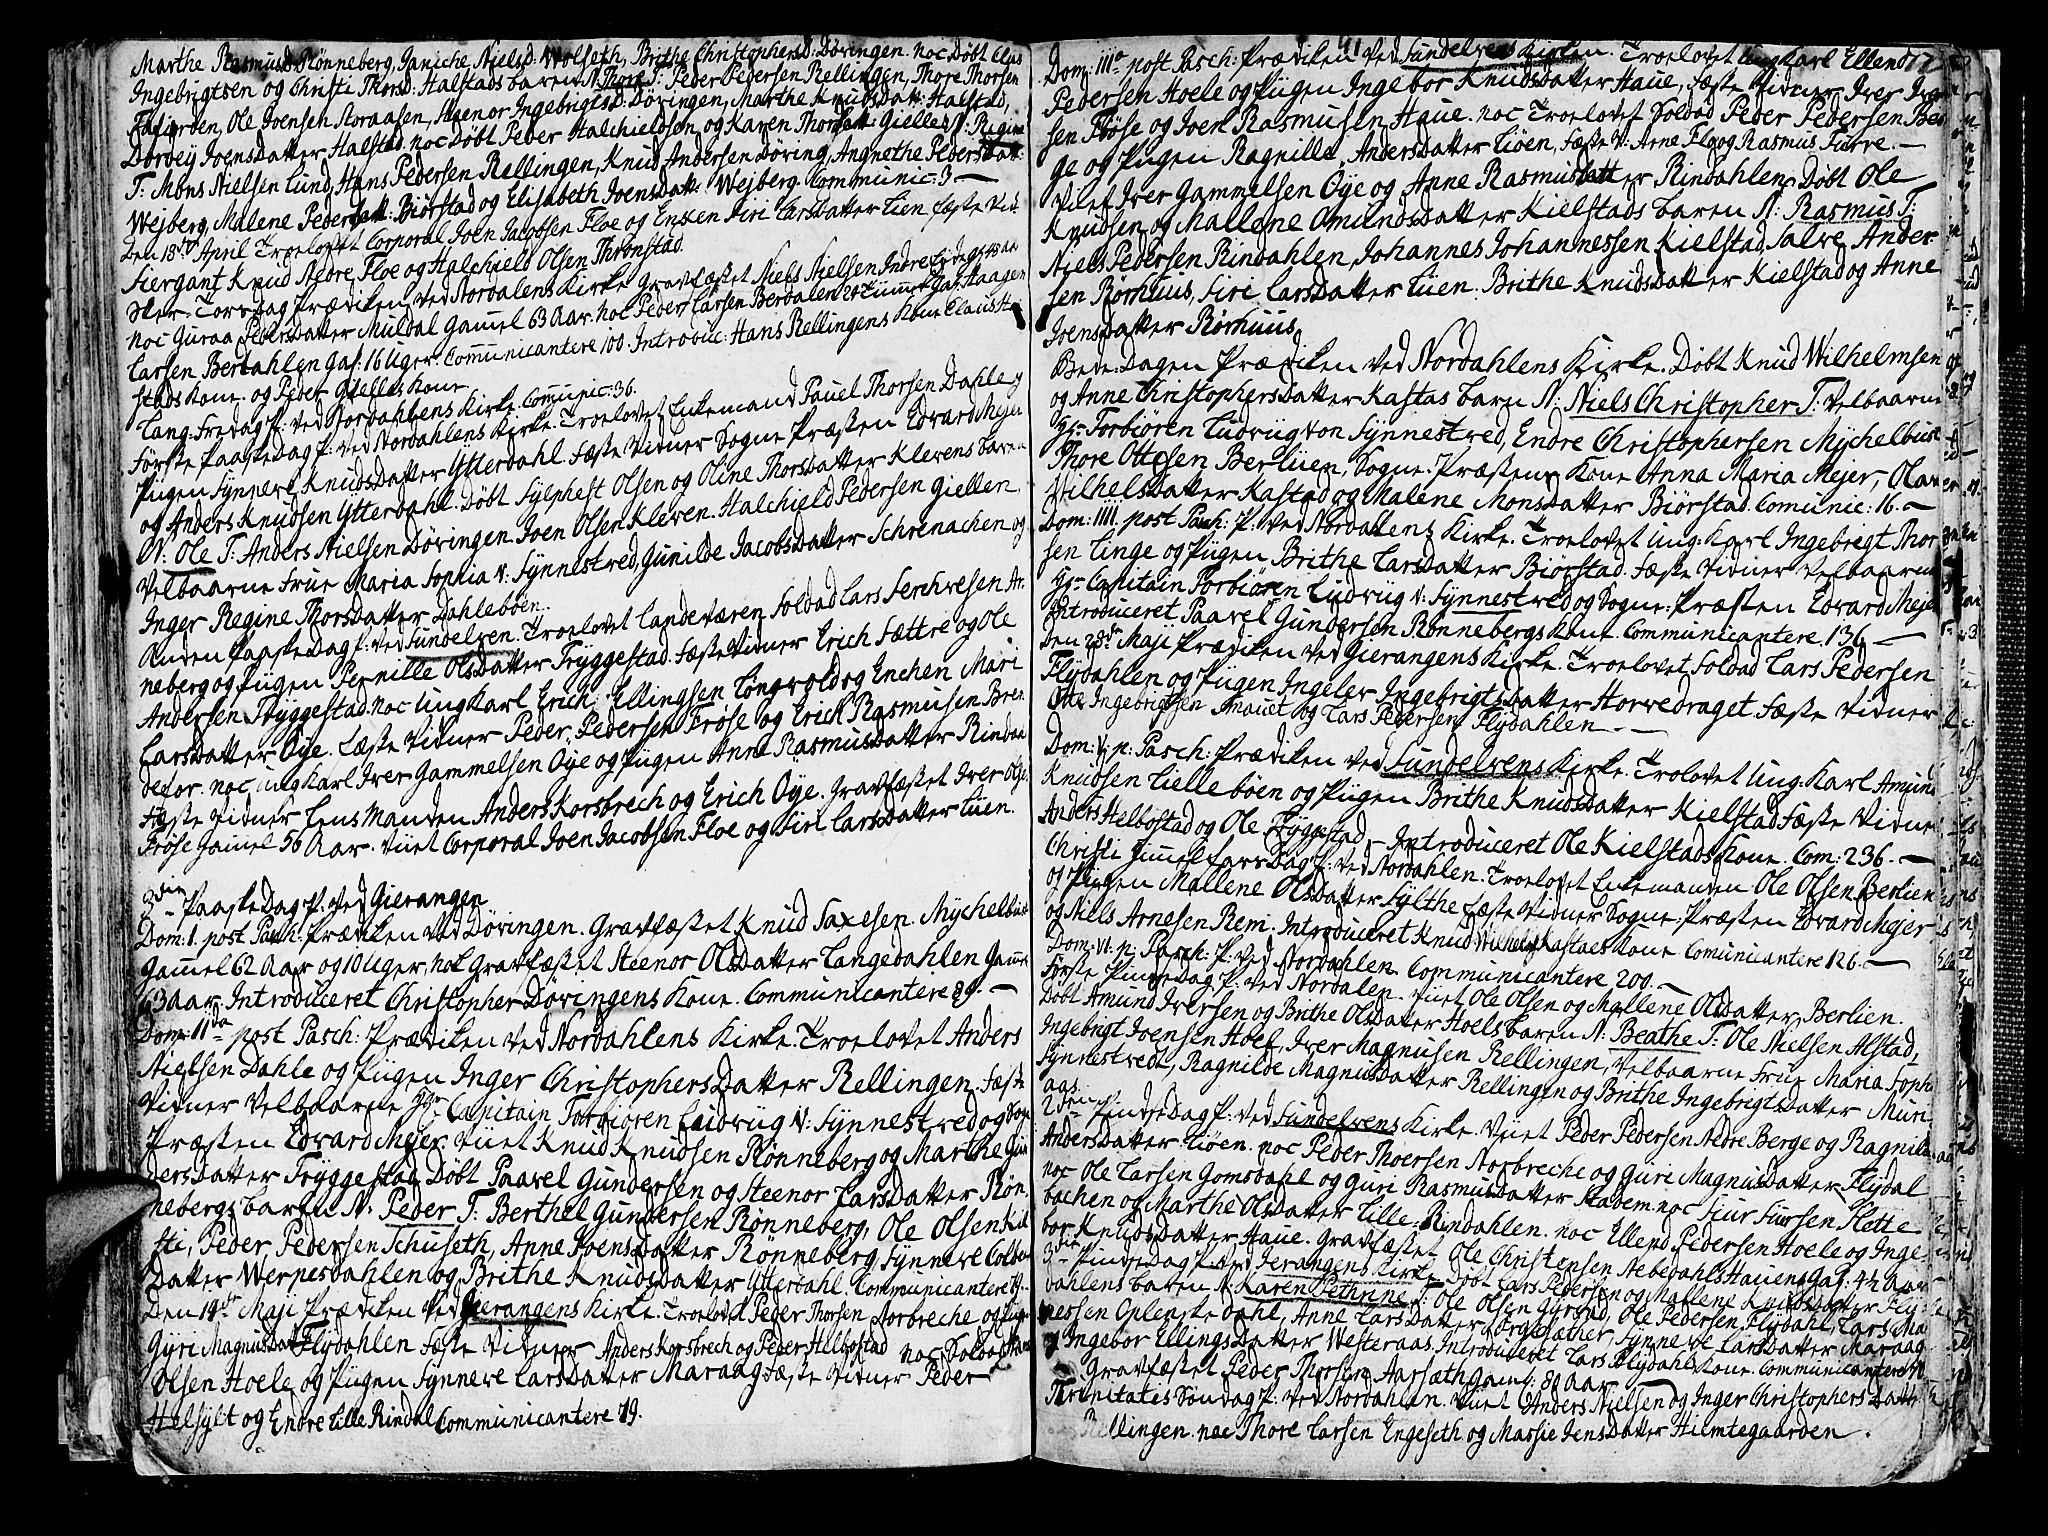 Marthe Rasmusd: Rønneberg, Janiche Nielsd: Wolseth, Brithe Christophersd: Døringen. noc Døbt Elias
Ingebrigtsen og Christi Thorsd: Halstads baren N. Thore T: Peder Pedersen Rellingen, Thore Thorsen
Fagierden, Ole Joensen Storaasen, Steenor Ingebrigtsd: Døringen, Marthe Knudsdatt: Halstad,
Dordey Joensdatter Halstad. noc Døbt Peder Halchieldsen og Karen Thorsdatt: Gielles N: Regine
T: Mons Nielsen Lund, Hans Pedersen Rellingen, Knud Andersen Døring, Angnethe Pedersdatt:
Wejberg, Malene Pedersdatt: Biørstad og Elisabeth Joensdatt: Wejberg Communic: 3 —
Den 18de April Troelovet Corporal Joen Jacobsen Floe og Enken Siri Larsdatter Lien fæste Vid:
Siergant Knud Nedre Floe og Halchield Olsen Thronstad.
Skier-Torsdag Prædiken ved Nordalens Kirke Gravfæstet Niels Nielsen Indre Eide gl: 48 aar
noc Guraa Pedersdatter Muldal Gamel 63 Aar. noc Peder Larsen Berdalen
Larsen Berdahlen Gal: 16 Uger. Communicantere 100. Introduc: Hans Rellingens Kone Claus Hal
stads Kone og Peder Gielles Kone
Lang-Fredag P: ved Nordahlens Kirke. Comunic: 36.
Første Paaskedag P: ved Nordahlens Kirke. Troelovet Enkemand Pauel Thorsen Dahle og
Pigen Synnere Knudsdatter Ytterdahl fæste Vidner Sogne Præsten Edvard Mejer
og Anders Knudsen Ytterdahl. Døbt Sylphest Olsen og Oline Thorsdatter Klevens baren
N: Ole T: Anders Nielsen Døringen Joen Olsen Kleven. Halchield Pedersen Giellen,
Velbaarne Frue Maria Sophia v: Synnestred, Gunilde Jacobsdatter Schrenachen og
Inger Regine Thorsdatter Dahlebøen.
Anden Paaskedag P: ved Sundelven. Troelovet Landeværen Soldad Lars Serchvesen Ar:
neberg og Pigen Pernille Olsdatter Tryggestad. fæste Vidner Erich Sættre og Ole
Andersen Tryggestad. noc Ung Karl Erich Ellingsen Longvold og Enchen Mari
Larsdatter Øye. fæste Vidner Peder Pedersen Frøse og Erich Rasmusen Bren
defor. noc ung karl Iver Gammelsen Øye og Pigen Anne Rasmusdatter Rindaa
fæste Vidner Lens Manden Anders Korsbrech og Erich Øye. Gravfæstet Iver Olse
Frøse Gamel 56 Aar. Viiet Corporal Joen Jacobsen Floe og Siri Larsdatter Lien.
3die Paaskedag P. ved Gierangen
Dom: 1. post Pasch: Prædiken ved Døringen. Gravfæstet Knud Saxesen Mychelbust
Gamel 62 Aar og 10 Uger, noc Gravfæstet Steenor Olsdatter Langedahlen Gamel
63 aar. Introduceret Christopher Døringens Kone. Communicantere 80. —
Dom: IIda post Pasch: Prædiken ved Nordahlens Kirke. Troelovet Anders
Nielsen Dahle og Pigen Inger Christophersdatter Rellingen. fæste
Vidner Velbaarne Hr: Capitain Torbiøren Ludvug v: Synnestred og Sogn
Præsten Edvard Mejer. Viiet Knud Knudsen Rønneberg og Marthe Gun
dersdatter Tryggestad. Døbt Paarel Gundersen og Steenor Larsdatter Røn
nebergs baren N: Peder T: Berthel Gundersen Rønneberg, Ole Olsen Kil
sti, Peder Pedersen Schuseth, Anne Joensdatter Rønneberg, Synnere Colben
datter Werpesdahlen og Brithe Knudsdatter Ytterdahl. Communicantere
Den 19de Maji Prædiken ved Gierangens Kirke. Troelovet Peder Thorsen Norbreche og Pige
Gyri Magnusdat: Flydahlen fæste Vidner Anders Korsbrech og Peder Helbostad noc Soldad
Olsen Hoele og Pigen Synnere Larsdatter Maraag. fæste Vidner Peder
Helsylt og Endre Lille Rindal Communicantere 79.
41
Dom: IIIa post Pasch: Prædiken ved Sundelvens Kirken. Troelovet Ung Karl Ellend
Pedersen Hoele og Pigen Ingebor Knudsdatter Haue, fæste Vidner Iver Iver
sen Frøse og Joen Rasmusen Haue. noc Troelovet Soldad Peder Pedersen Ber
ge og Pigen Ragnille Andersdatter Liøen, fæste V: Arne Flo og Rasmus Furre. —
Viiet Iver Gammelsen Øye og Anne Rasmusdatter Rindahlen. Døbt Ole
Knudsen og Mallene Omundsdatter Kielstads baren N: Rasmus T:
Niels Pedersen Rindahlen, Johannes Johannessen Kielstad, Salve Ander
sen Rørhuus, Siri Larsdatter Lien. Brithe Knudsdatter Kielstad og Anne
Joensdatter Rørhuus.
Bede-Dagen Prædiken ved Nordahlens Kirke. Døbt Knud Wilhelmsen
og Anne Christophersdatter Kastas barn N: Niels Christopher T: Velbaarne
Hr: Torbiøren Ludvug von Synnestred, Endre Christophersen Mychelbust
Thore Ottesen Berliien, Sogne-Præstens Kone Anna Maria Mejer, Olav
Wilhelsdatter Kastad og Malene Monsdatter Biørstad. Comunic: 16. —
Dom: IIII. post Pasch: P: ved Nordahlens Kirke. Troelovet Ung-Karl Ingebregt Thor
sen Linge og Pigen Brithe Larsdatter Biørstad. fæste Vidner Velbaarne
Hr: Capitain Torbiøren Ludvug v: Synnestred og Sogne-Præsten Edvard Mejer
Introduceret Paavel Gundersen Rønnebergs Kone. Communicantere 136. —
Den 28de Maji Prædiken ved Gierangens Kirke. Troelovet Soldad Lars Pedersen
Flydahlen og Pigen Ingeler Ingebrigtsdatter Horvedraget fæste Vidner
Otte Ingebrigtsen og Lars Pedersen Flydahlen. —
Dom: V. p: Pasch: Prædiken ved Sundelvens Kirke. Trolovet Ung-Karl Amund
Knudsen Lillebøen og Pigen Brithe Knudsdatter Kielstad fæste Vidner
Anders Helbostad og Ole Tryggestad — Introduceret Ole Kielstads Kone. Com: 236. —
Christi Himmelfarts Dag P: ved Nordahlen. Troelovet Enkemanden Ole Olsen Berlien
og Pigen Mallene Olsdatter Sylthe fæste Vidner Sogne-Præsten Edvard Mejer
og Niels Arnesen Rem. Introduceret Knud Wilhels: Kastaes Kone Comunicantere 126. —
Dom: VI. p: Pasch: P: ved Nordahlen Communicantere 200. —
Første Pindsedag P: ved Nordalen. Viiet Ole Olsen og Mallene Olsdatter Berlien.
Døbt Amund Iversen og Brithe Olsdatter Hoels baren N: Beathe T: Ole Nielsen Alstad,
Ingebrigt Ivensen Hoel, Iver Magnusen Rellingen, Velbaarne Frue Maria Soph
Synnestred, Ragnilde Magnusdatter Rellingen og Brithe Ingebrigtsdatter Muri
aas.
2den Pindsedag P: ved Sundelvens Kirke. Viiet Peder Pedersen Nedre Berge og Ragnilde
Andersdatter Liøen. noc Peder Thoersen Norbreche og Guri Magnusdatter Flydal
noc Ole Larsen Gomsdahl og Guri Rasmusdatter Stadem. noc Siur Siursen Slette
bachen og Marthe Olsdatter Lille-Rindahlen. noc Ellend Pedersen Hoele og Inge-
bor Knudsdatter Haue. Gravfæstet Ole Christensen Nebedahls Haueng Gal: 4½ Aar
3die Pindsedag P: ved Ierangens Kirke. Døbt Lars Pedersen og Mallene Knudsdatter Fly
dahlens baren N: Karen Pethrine T: Ole Olsen Gyrstad, Ole Pedersen Flydahl, Lars Ma
nessen Oplenskedahl, Anne Larsdatter Horgesæther, Synneve Larsdatter Maraag
og Ingebor Ellingsdatter Westeraas. Introduceret Lars Flydahls Kone. Communicantere
Gravfæstet Peder Thorsen Aarsæth gaml: 80 Aar —
Thrinitates Søndag P: ved Nordahlen. Viiet Anders Nielsen og Inger Christophersdatt:
Rellingen. noc Thore Larsen Engeseth og Massie Jensdatter Hilmtegaarden.